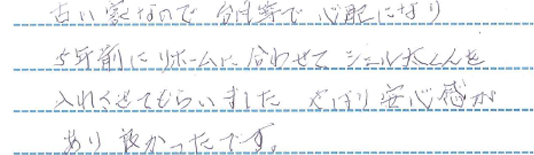 古い家なので 台風等で心配になり
5年前にリホームに合わせてシェル太くんを
入れさせてもらいました やはり安心感が
あり良かったです。